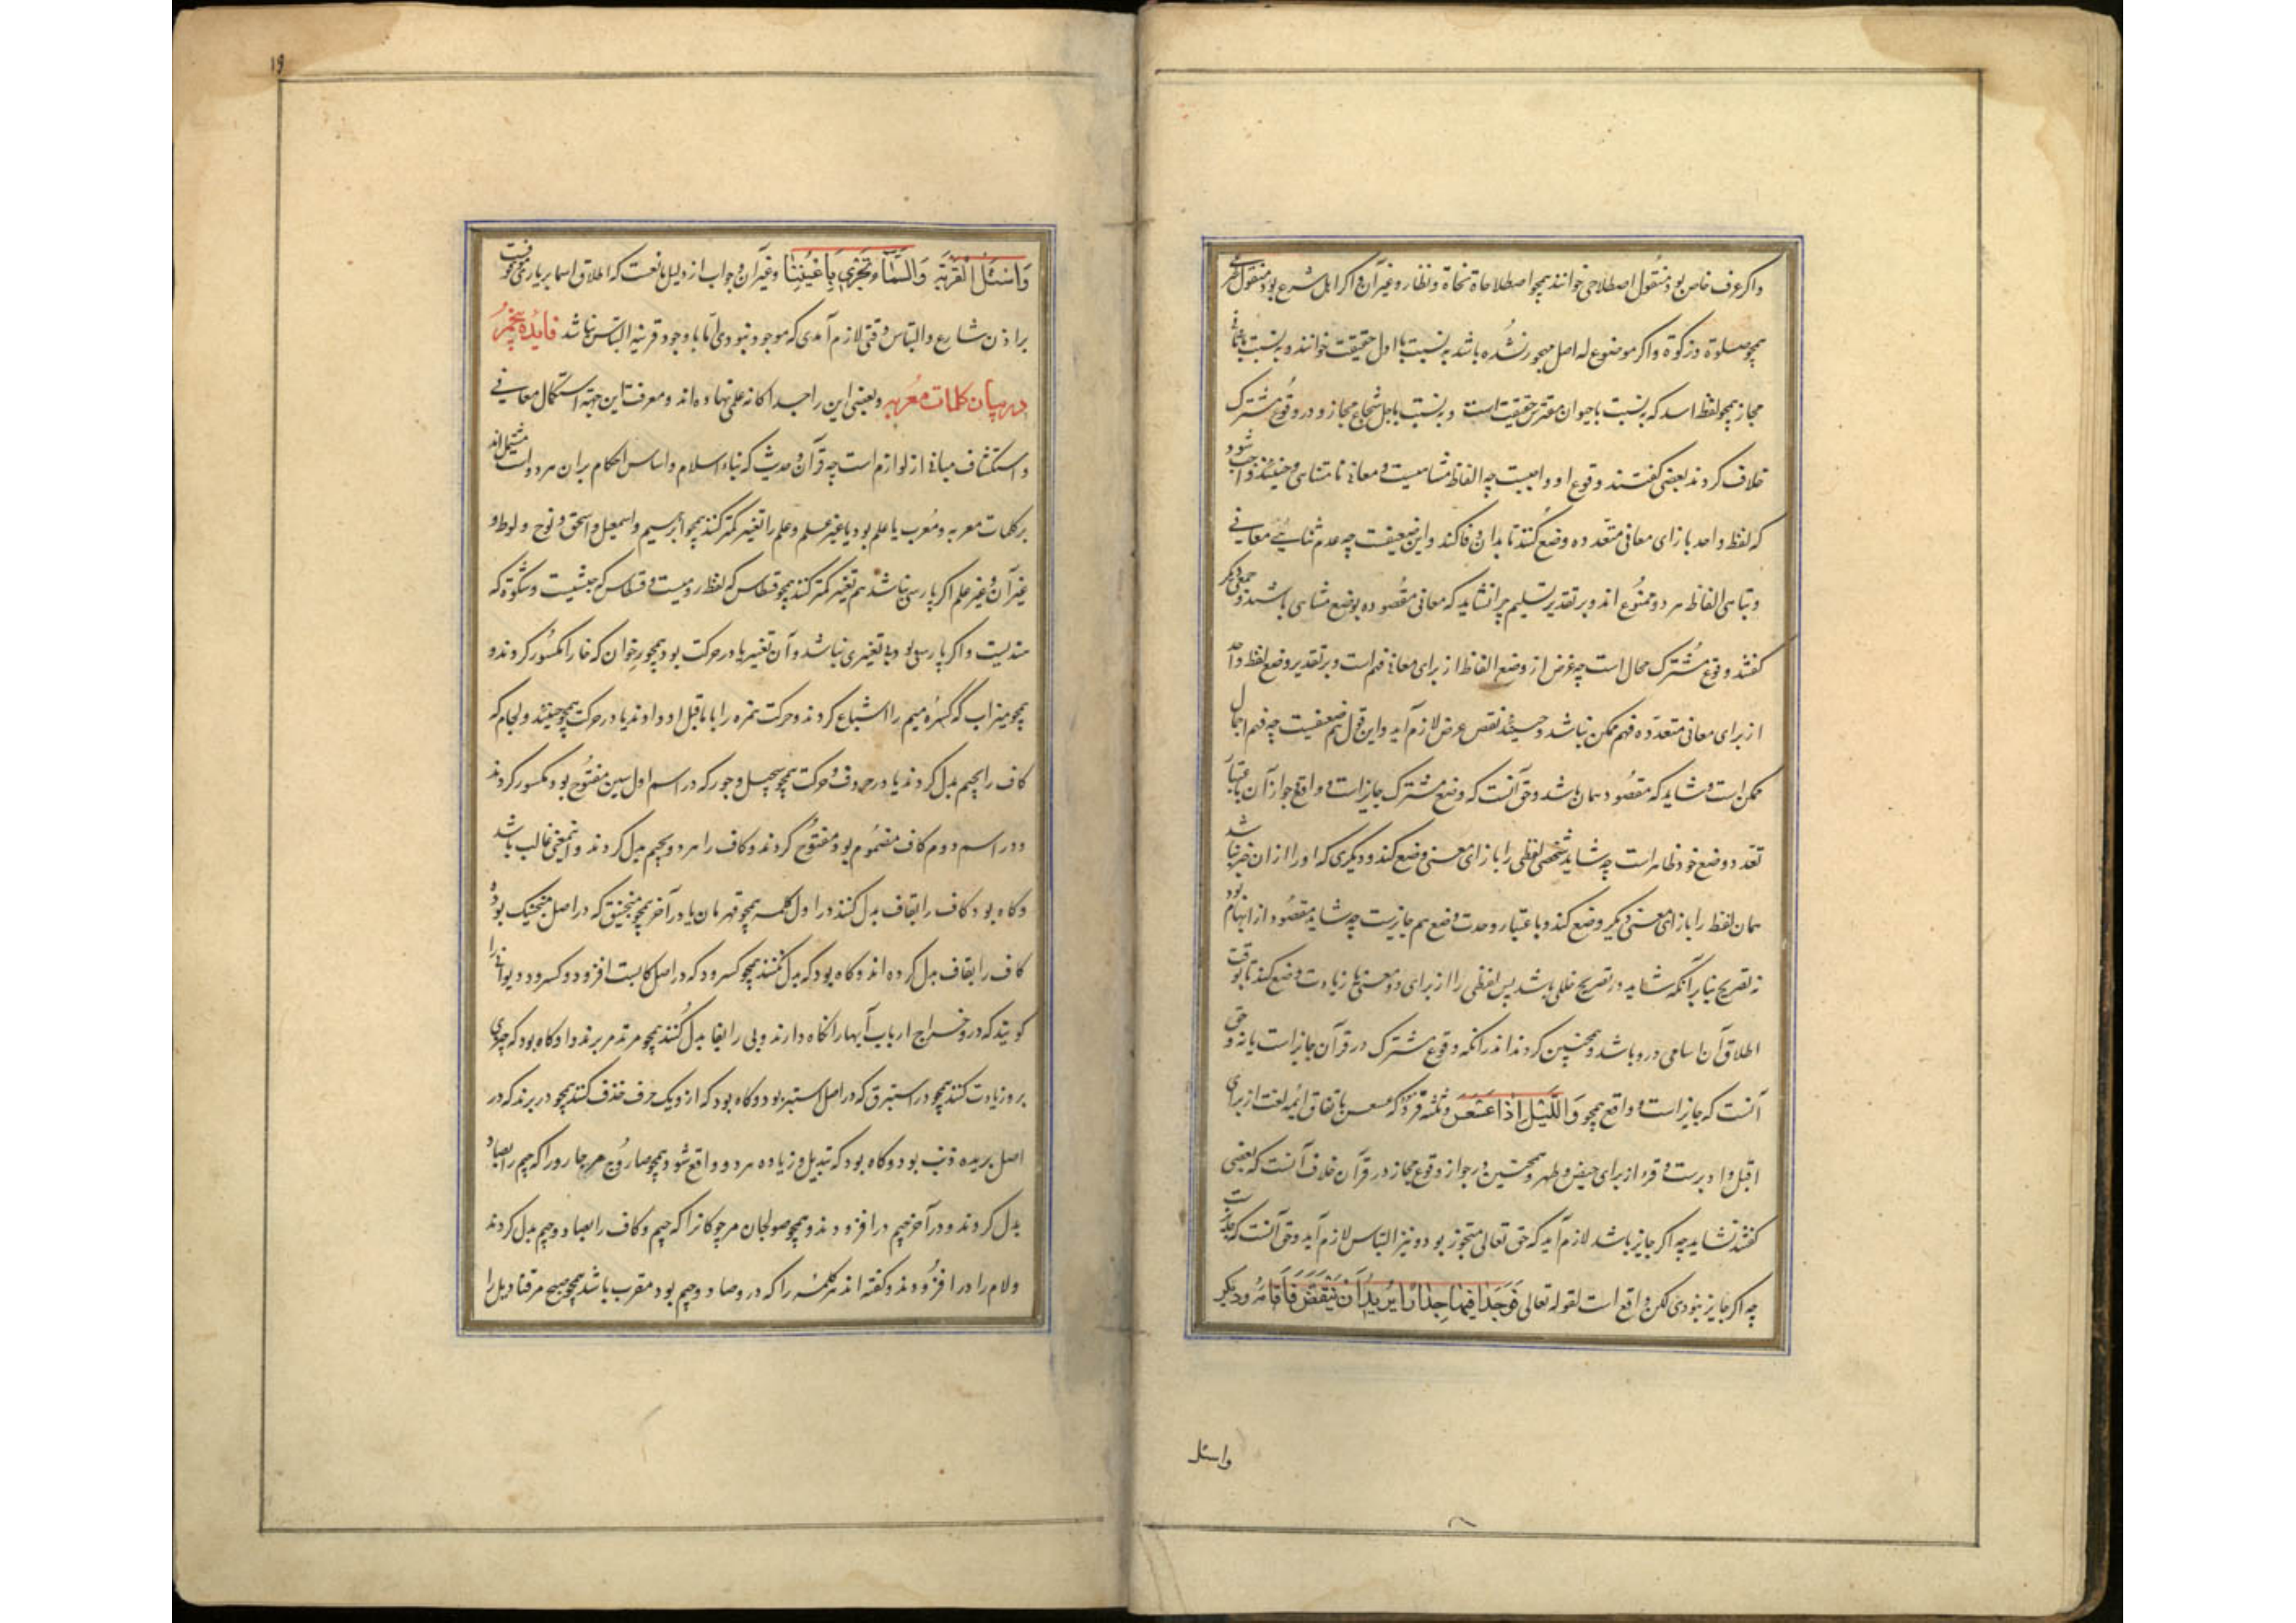 واکر عرف خاص بود منقول اصطلاحی خوانند همچو اصطلاحات نحاة و نظار و غیر آن و اکر اهل شرع بود منقول شرعی
همچو صلوة و زکوة و اکر موضوع له اصل مهجور نشده باشد به نسبت با اول حقیقت خوانند و به نسبت با ثانی
مجاز همچو لفظ اسد که به نسبت با حیوان مفترس حقیقت است و به نسبت با رجل شجاع مجاز و در وقوع مشترک
خلاف کردند بعضی کفتند وقوع او واجبست چه الفاظ متناهیست و معانی نامتناهی و حینئذ واجب شود
که لفظ واحد بازای معانی متعدده وضع کنند تا بدان وفا کند و این ضعیفست چه عدم تناهی معانی
و تناهی الفاظ هر دو ممنوع اند و بر تقدیر تسلیم چرا نشاید که معانی مقصوده بوضع متناهی باشند و جمعی دیکر
کفتند وقوع مشترک محال است چه غرض از وضع الفاظ از برای معانی فهم است و بر تقدیر وضع لفظ واحد
از برای معانی متعدده فهم ممکن نباشد و حینئذ نقض غرض لازم آید و این قول هم ضعیفست چه فهم اجمال
ممکن است و شاید که مقصود همان باشد و حق آنست که وضع مشترک جایز است و واقع جواز آن باعتبار
تعدد وضع خود ظاهر است چه شاید شخصی لفظی را بازای معنی وضع کند و دیکری که او را از ان خبر نباشد
همان لفظ را بازای معنی دیکر وضع کند و باعتبار وحدت وضع هم جایزست چه شاید مقصود از ابهام بود
نه تصریح بنا بر آنکه شاید در تصریح خللی باشد پس لفظی را از برای دو معنی یا زیادت وضع کند تا بوقت
اطلاق آن اسامی درو باشد و همچنین کردند اند در آنکه وقوع مشترک در قرآن جایز است یا نه و حق
آنست که جایز است و واقع همچو وَاللَّیْلِ إِذَا عَسْعَسَ و ثلثه قروء که عسعس باتفاق ائمه لغت از برای
اقبل و ادبرست و قرء از برای حیض و طهر و همچنین در جواز وقوع مجاز در قرآن خلاف آنست که بعضی
کفتند نشاید چه اکر جایز باشد لازم آید که حق تعالی متجوز بود و نیز التباس لازم آید و حق آنست که جایزست
چه اکر جایز نبودی لکن واقع است لقوله تعالی فَوَجَدَا فِیهَا جِدَارًا یُرِیدُ أَنْ یَنْقَضَّ فَأَقَامَهُ و دیکر
واسئل
۱۹
وَاسْئَلِ الْقَرْیَةَ وَالسَّمَاءَ وَتَجْرِی بِأَعْیُنِنَا و غیر آن و جواب از دلیل مانعست که اطلاق اسما بر باری موقوفست
بر اذن شارع و التباس وقتی لازم آمدی که قرینه موجود نبودی اما با وجود قرینه التباس نباشد فایده پنجم
در بیان کلمات معربه و بعضی این را جداکانه علمی نهاده اند و معرفت این جهة استکمال معانی
و استکشاف مبانی از لوازم است چه قرآن و حدیث که بناء اسلام و اساس احکام بران هر دو است مشتمل اند
بر کلمات معربه و معرب یا علم بود یا غیر علم و علم را تغیر کمتر کنند همچو ابرهیم و اسمعیل و اسحق و نوح و لوط و
غیر آن و غیر علم اکر پارسی نباشد هم تغیر کمتر کنند همچو قسطاس که لفظ رومیست و قسطاس که حبشیست و مشکوة که
هندیست و اکر پارسی بود بی تغیری نباشد و آن تغیر یا در حرکت بود همچو خوان که خا را مکسور کردند و
همچو میزاب که کسره میم را اشباع کردند و حرکت همزه را با ماقبل او دادند یا در حرف همچو و لجام که
کاف را بجیم بدل کردند یا در حروف و حرکت همچو سجیل و جور که در اسم اول سین مفتوح بود مکسور کردند
و در اسم دوم کاف مضموم بود مفتوح کردند و کاف را هر دو بجیم بدل کردند و این معنی غالب باشد
و کاه بود کاف را بقاف بدل کنند در اول کلمه همچو قهرمان یا در آخر همچو منجنیق که در اصل منجنیک بود و
کاف را بقاف بدل کرده اند و کاه بود که بدل نکنند همچو کسرود که در اصل کاست افزود و کسرود دیوانی را
کویند که درو خراج ارباب آبها را نکاه دارند و بی را بفا بدل کنند همچو فرند مر پرند را و کاه بود که چیزی
برو زیادت کنند همچو در استبرق که در اصل استبر بود و کاه بود که ازو یک حرف حذف کنند همچو در برند که در
اصل بریده ذنب بود و کاه بود که تبدیل و زیاده هر دو واقع شود همچو صاروج مر چارو را که جیم را بصاد
بدل کردند و در آخر جیم در افزودند و همچو صولجان مر چوکان را که جیم و کاف را بصاد و جیم بدل کردند
و لام را در افزودند و کفته اند هر کلمه را که درو صاد و جیم بود معرب باشد همچو صبح مر قنادیل را